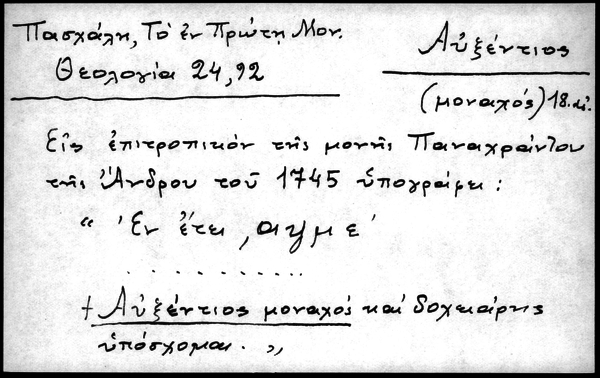 Πασχάλη, Τὸ ἐν Πρώτῃ Μον.
Θεολογία 24, 92
Αὐξέντιος
(μοναχός) 18. αἰ.
Εἰς ἐπιτροπικὸν τῆς μονῆς Παναχράντου
τῆς Ἄνδρου τοῦ 1745 ὑπογράφει:
“ Ἐν ἔτει ,αψμε´
. . . . . . . . . .
† Αὐξέντιος μοναχός καὶ δοχειάρης
ὑπόσχομαι. „